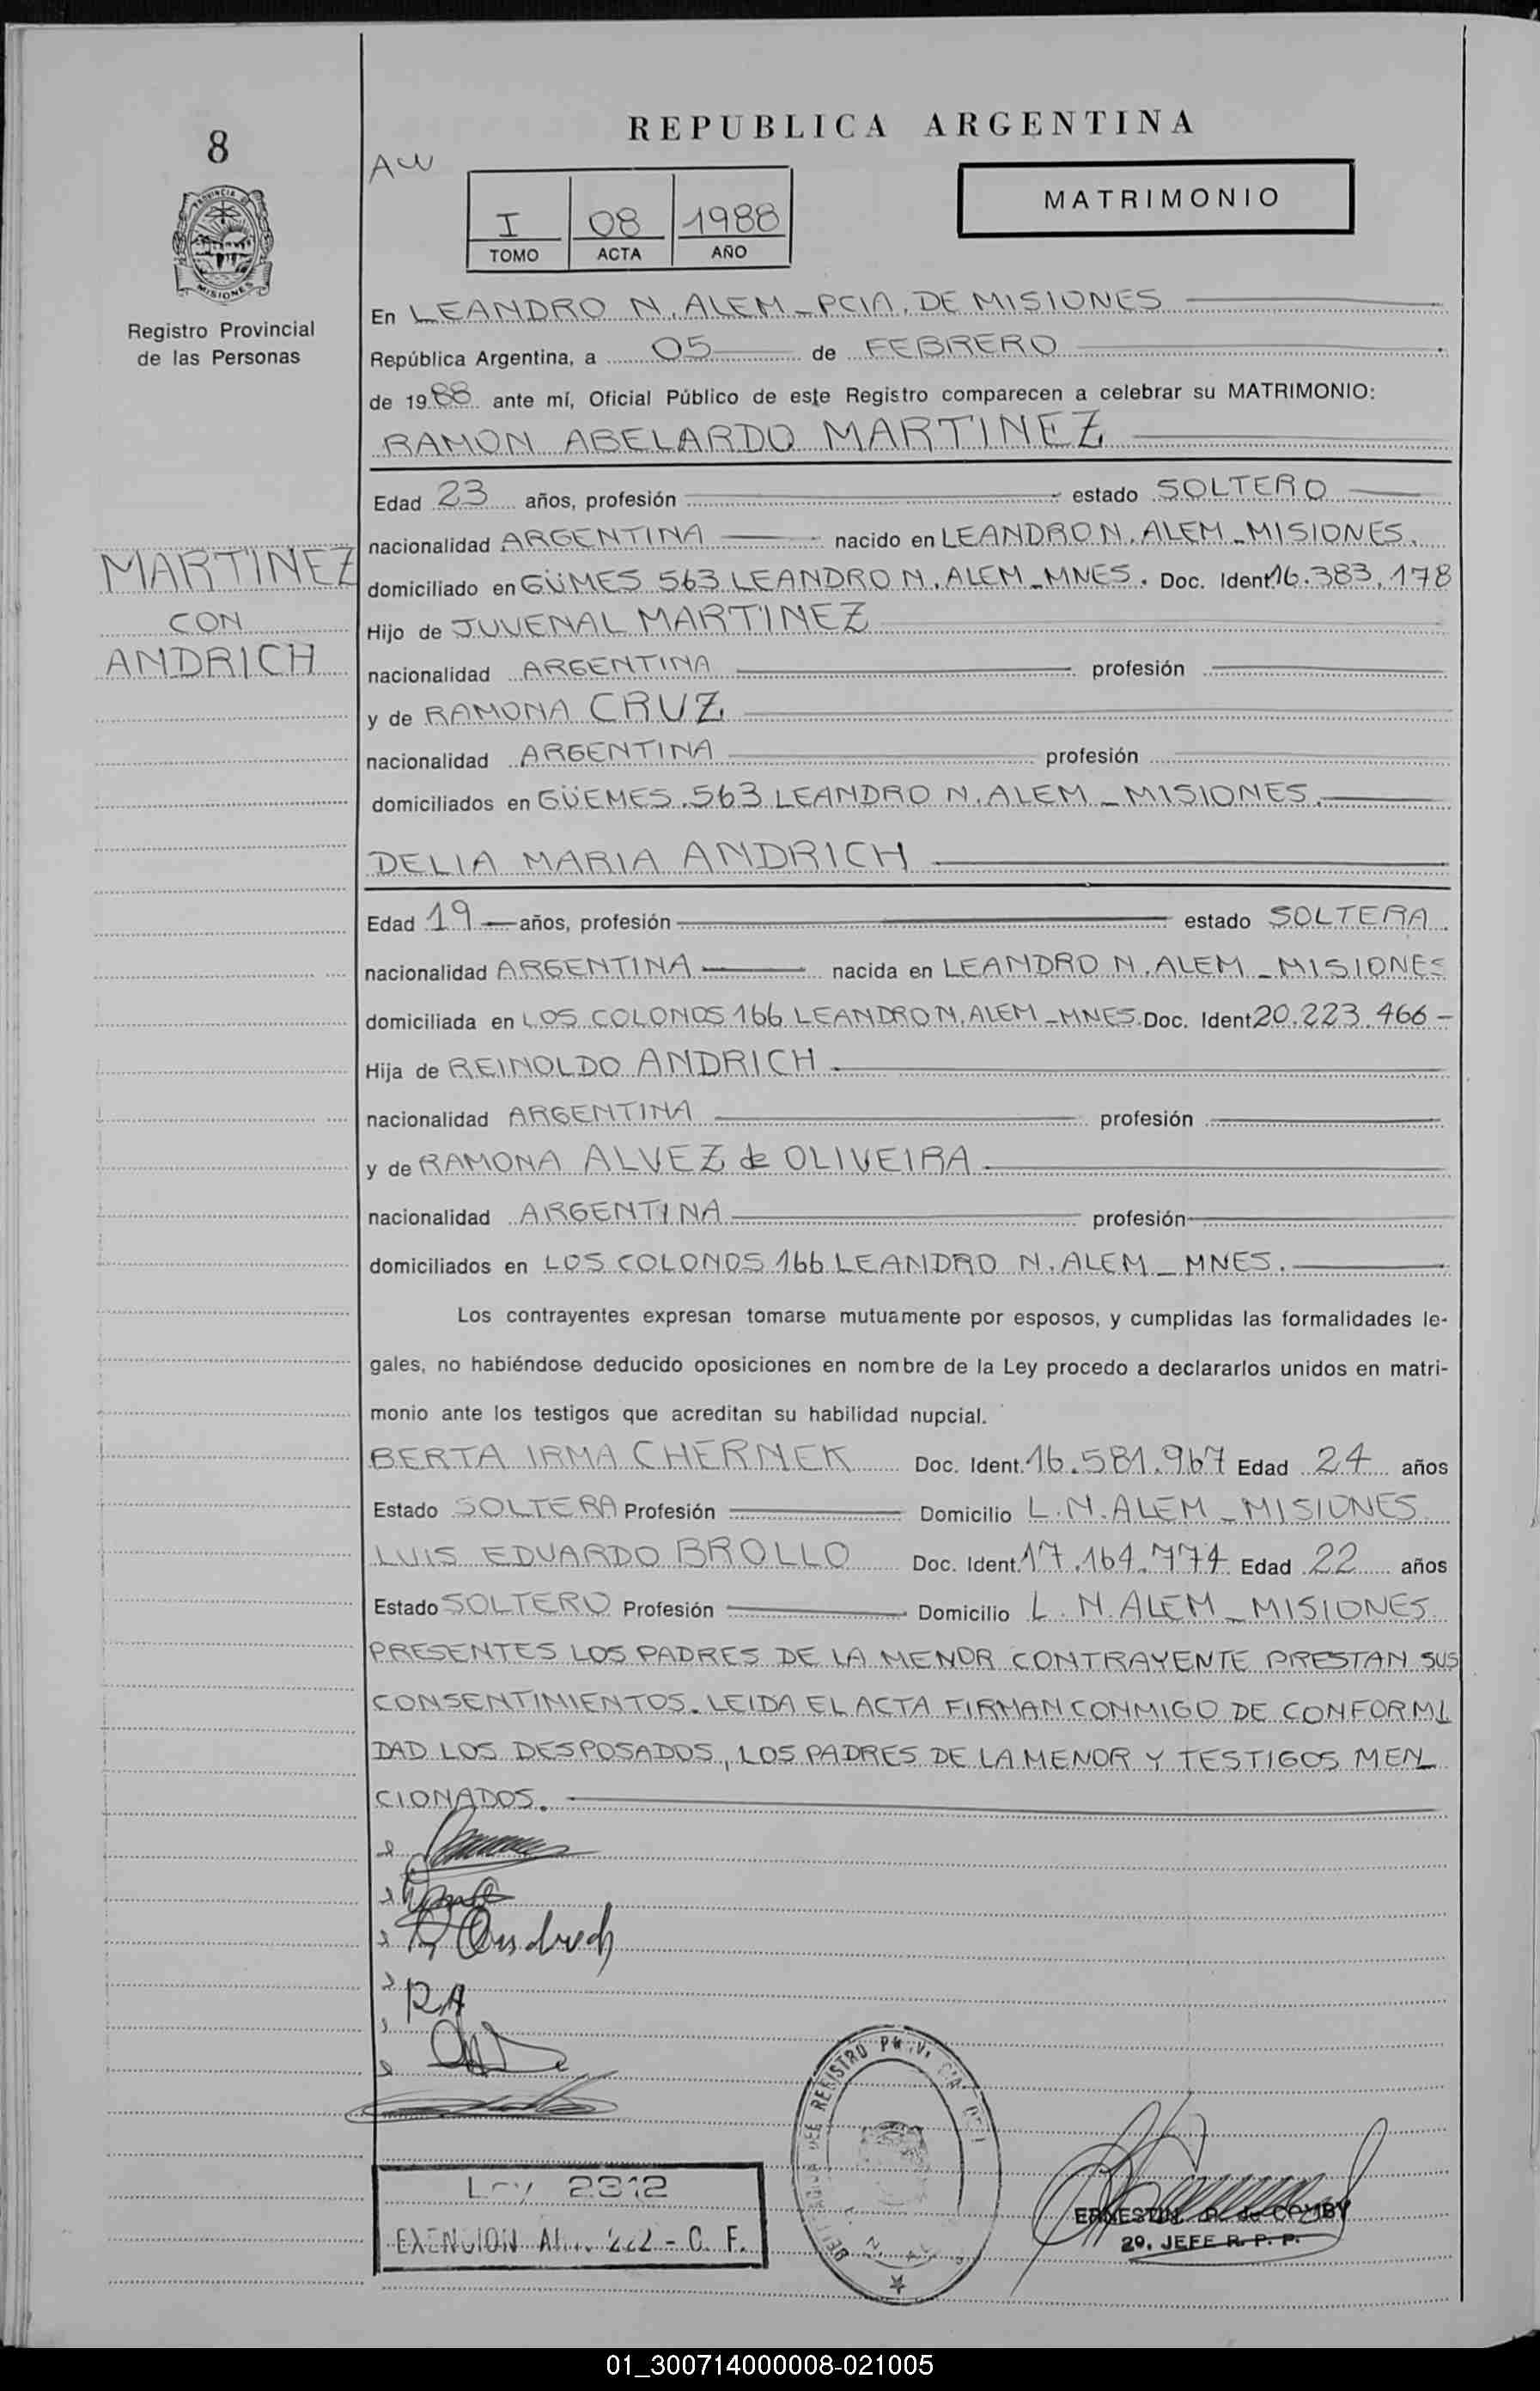 REPUBLICA ARGENTINA
8
AW
MATRIMONIO
I 08 1988
TOMO ACTA AÑO
PROVINCIA DE
MISIONES
Registro Provincial
de las Personas
En LEANDRO N. ALEM _ PCIA. DE MISIONES
República Argentina, a 05 de FEBRERO
de 1988 ante mí, Oficial Público de este Registro comparecen a celebrar su MATRIMONIO:
RAMON ABELARDO MARTINEZ
Edad 23 años, profesión estado SOLTERO
nacionalidad ARGENTINA nacido en LEANDRO N. ALEM _ MISIONES.
MARTINEZ
CON
ANDRICH
domiciliado en GÜMES 563 LEANDRO N. ALEM _ MNES. Doc. Ident 16.383.178
Hijo de JUVENAL MARTINEZ
nacionalidad ARGENTINA profesión
y de RAMONA CRUZ
nacionalidad ARGENTINA profesión
domiciliados en GÜEMES.563 LEANDRO N. ALEM _ MISIONES.
DELIA MARIA ANDRICH
Edad 19 años, profesión estado SOLTERA
nacionalidad ARGENTINA nacida en LEANDRO N. ALEM _ MISIONES
domiciliada en LOS COLONOS 166 LEANDRO N. ALEM _ MNES. Doc. Ident 20.223.466 -
Hija de REINOLDO ANDRICH
nacionalidad ARGENTINA profesión
y de RAMONA ALVEZ de OLIVEIRA
nacionalidad ARGENTINA profesión
domiciliados en LOS COLONOS 166 LEANDRO N. ALEM _ MNES.
Los contrayentes expresan tomarse mutuamente por esposos, y cumplidas las formalidades le-
gales, no habiéndose deducido oposiciones en nombre de la Ley procedo a declararlos unidos en matri-
monio ante los testigos que acreditan su habilidad nupcial.
BERTA IRMA CHERNEK Doc. Ident. 16.581.967 Edad 24 años
Estado SOLTERA Profesión Domicilio L.N.ALEM _ MISIONES
LUIS EDUARDO BROLLO Doc. Ident. 17.164.774 Edad 22 años
Estado SOLTERO Profesión Domicilio L.N.ALEM _ MISIONES
PRESENTES LOS PADRES DE LA MENOR CONTRAYENTE PRESTAN SUS
CONSENTIMIENTOS. LEIDA EL ACTA FIRMAN CONMIGO DE CONFORMI
DAD LOS DESPOSADOS, LOS PADRES DE LA MENOR Y TESTIGOS MEN
CIONADOS.
R Andrich
RA
REGISTRO
Ley 2312
EXENCION Art. 222 - C. F.
de COMBY
2º. JEFE R. P. P.
01_300714000008-021005